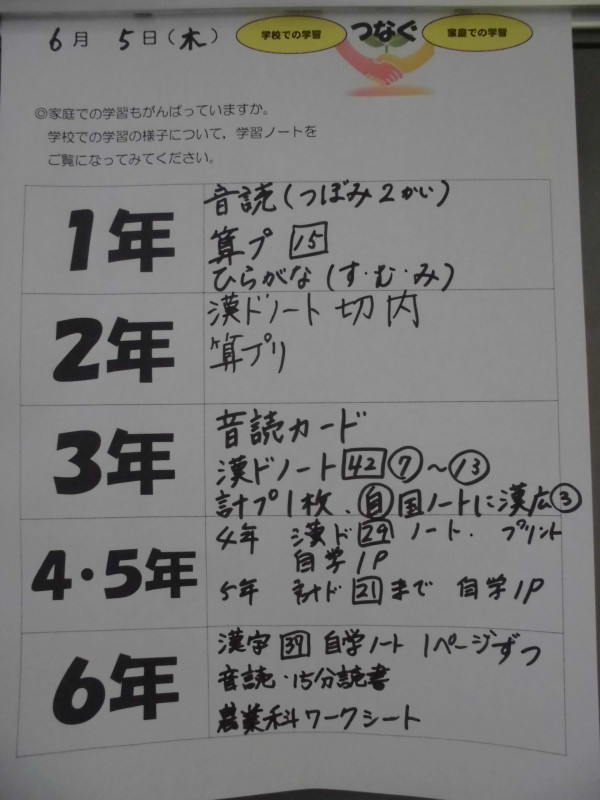 6月 5日(木)
学校での学習 つなぐ 家庭での学習
◎家庭での学習もがんばっていますか。
学校での学習の様子について、学習ノートを
ご覧になってみてください。
1年
音読(つぼみ2かい)
算プ 15
ひらがな(す・む・み)
2年
漢ドノート 切内
算プリ
3年
音読カード
漢ドノート 42 ⑦~⑬
計プ1枚、自 国ノートに漢広③
4・5年
4年 漢ド 29 ノート. プリント
自学1P
5年 計ド 21 まで 自学1P
6年
漢字 39 自学ノート 1ページずつ
音読・15分読書
農業科ワークシート